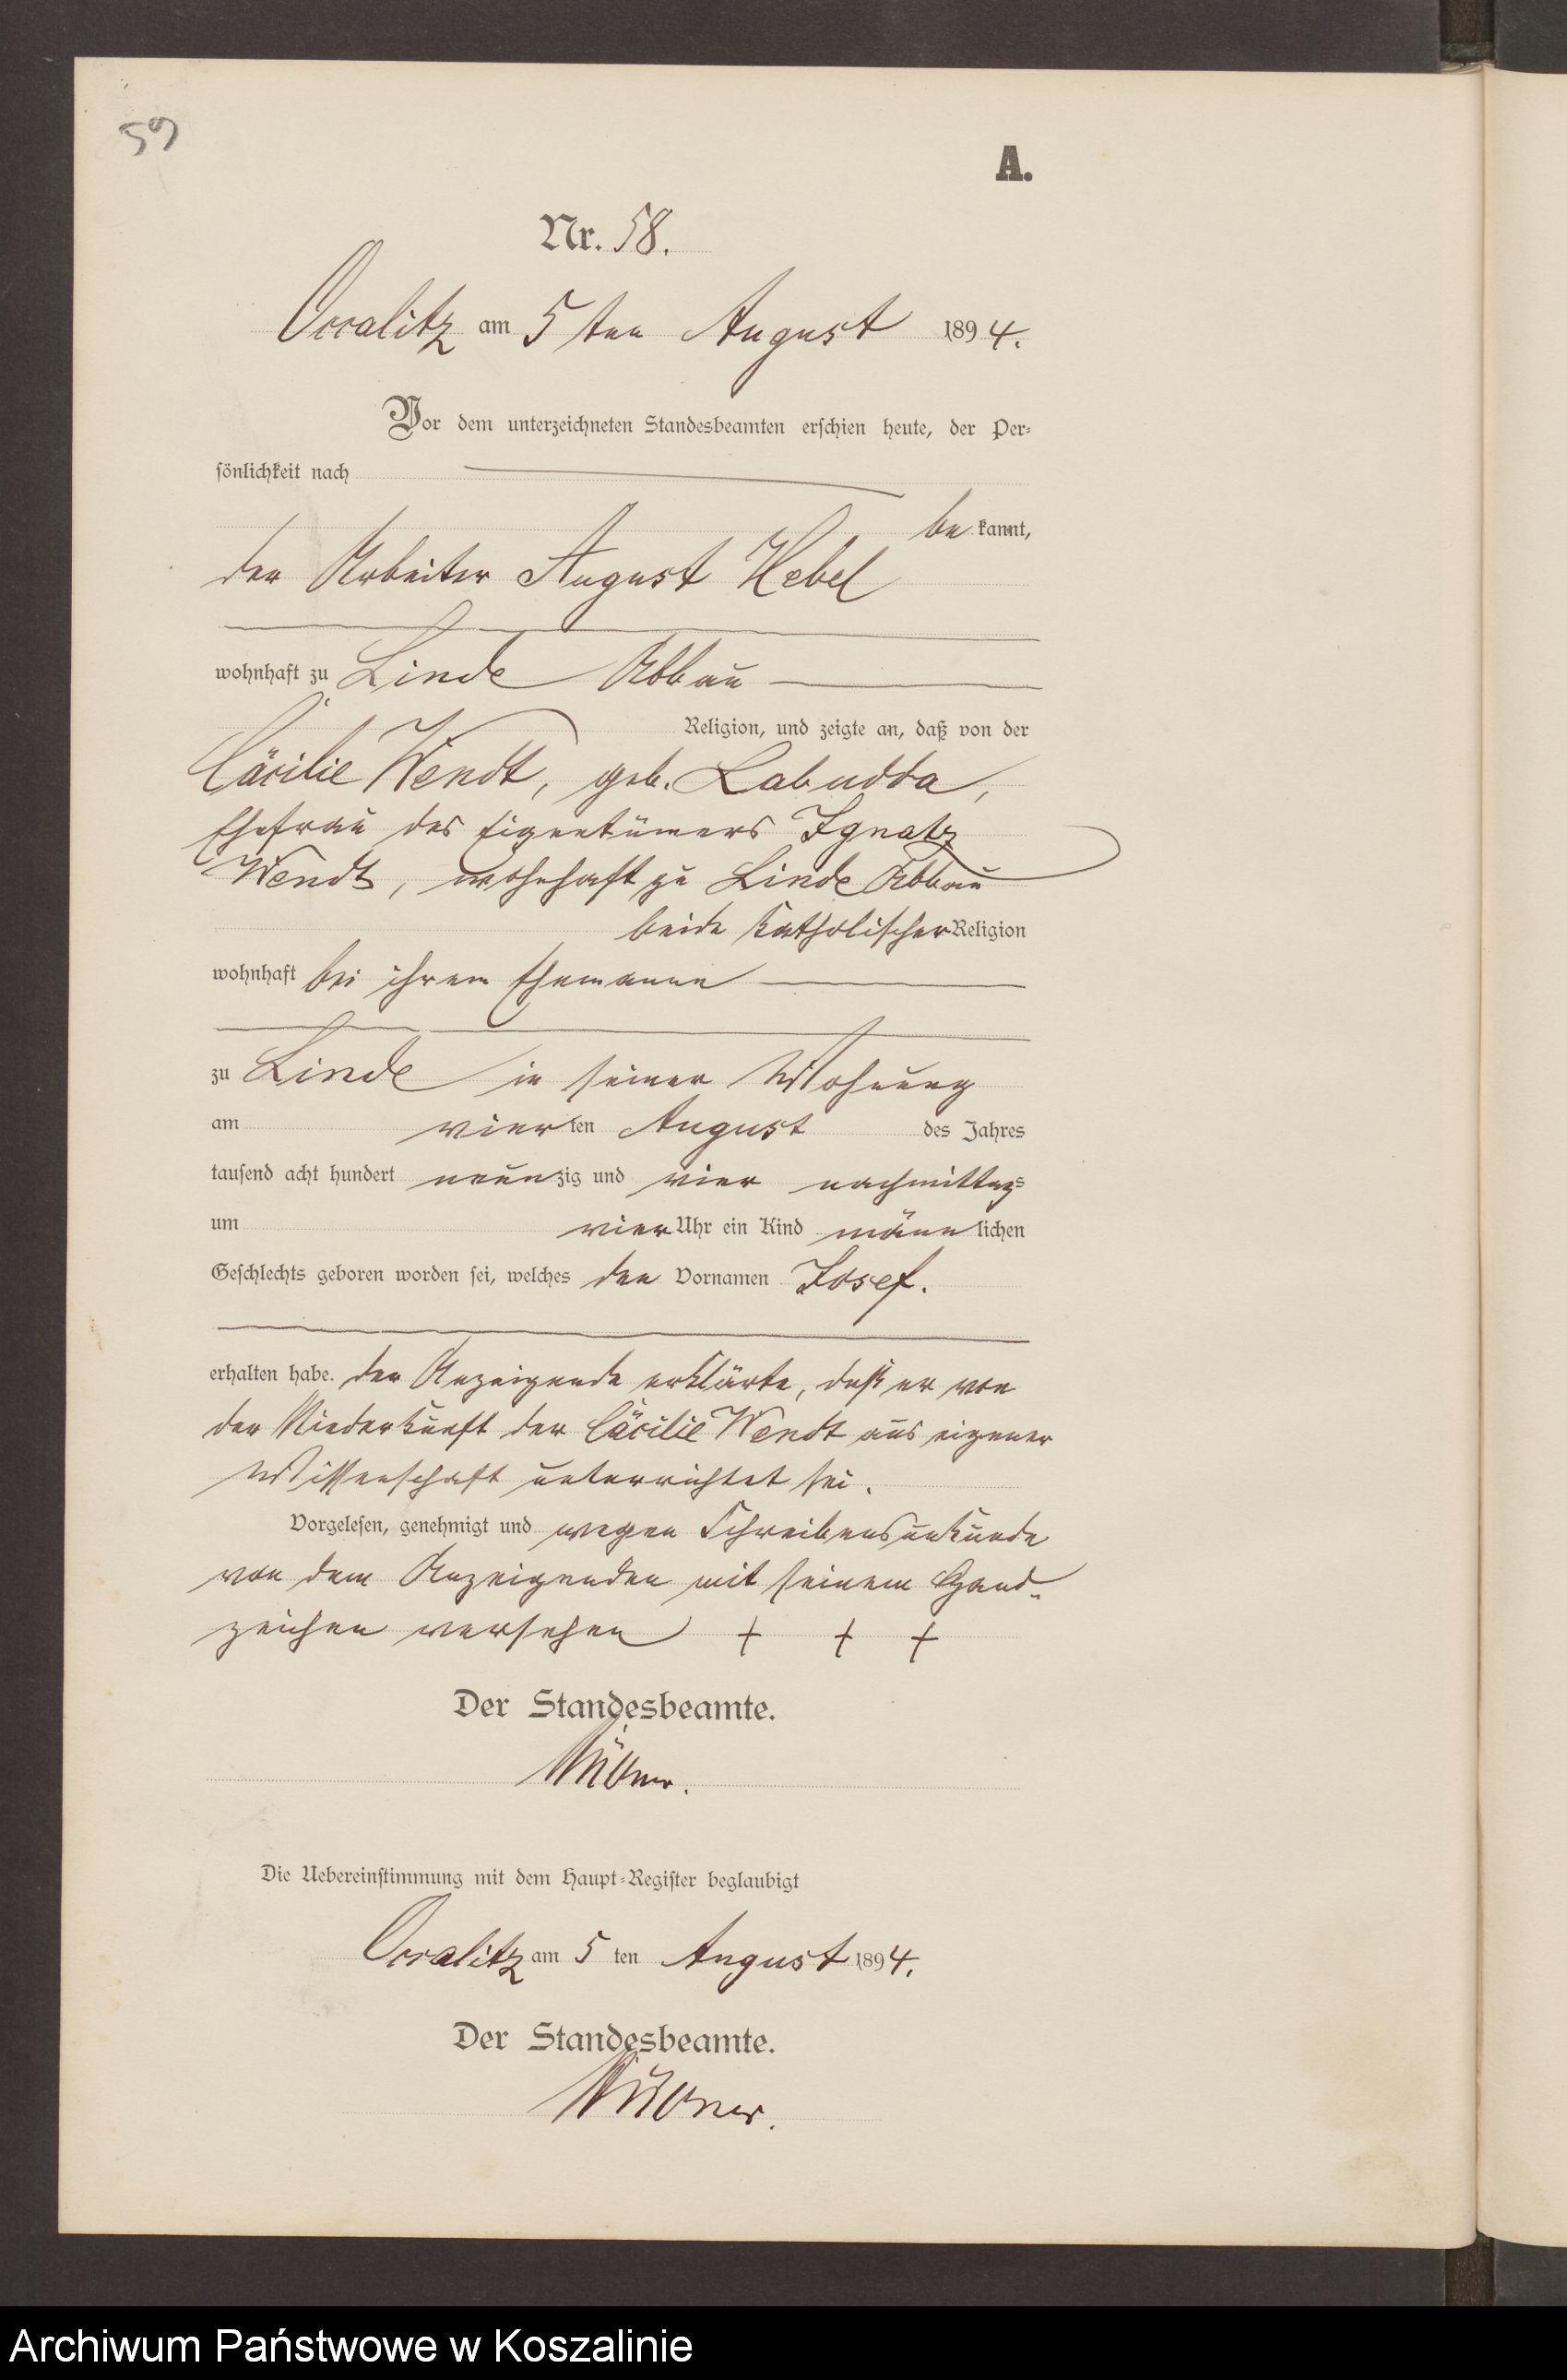 59
A.
Nr. 58.
Occalitz am 5 ten August 1894.
Vor dem unterzeichneten Standesbeamten erschien heute, der Per-
sönlichkeit nach
be kannt,
der Arbeiter August Hebel
wohnhaft zu Linde Abbau
Religion, und zeigte an, daß von der
Cäcilie Wendt, geb. Labudda,
Ehefrau des Eigentümers Ignatz
Wendt, wohnhaft zu Linde Abbau
beide katholischer Religion
wohnhaft bei ihrem Ehemanne
zu Linde in seiner Wohnung
am vierten August des Jahres
tausend acht hundert neunzig und vier nachmittags
um vier Uhr ein Kind männlichen
Geschlechts geboren worden sei, welches den Vornamen Josef.
erhalten habe. der Anzeigende erklärte, daß er von
der Niederkunft der Cäcilie Wendt aus eigener
Wissenschaft unterrichtet sei.
Vorgelesen, genehmigt und wegen Schreibensunkunde
von dem Anzeigenden mit seinem Hand-
zeichen versehen + + +
Der Standesbeamte.
Die Uebereinstimmung mit dem Haupt-Register beglaubigt
Occalitz am 5 ten August 1894.
Der Standesbeamte.
Archiwum Państwowe w Koszalinie